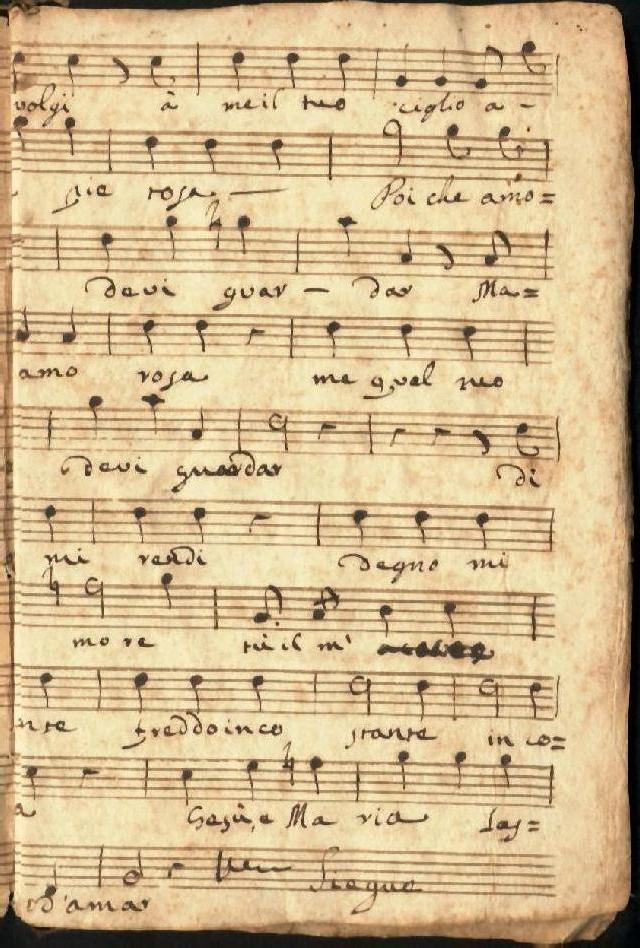 volgi à me il tuo ciglio a-
pie tosa — Poi che amo=
devi guar — dar Ma=
amo rosa me quel tuo
devi guardar di
mi rendi degno mi
more tù il m'
nte freddo inco stante in co=
a Gesù, e Maria las=
d'amar Siegue